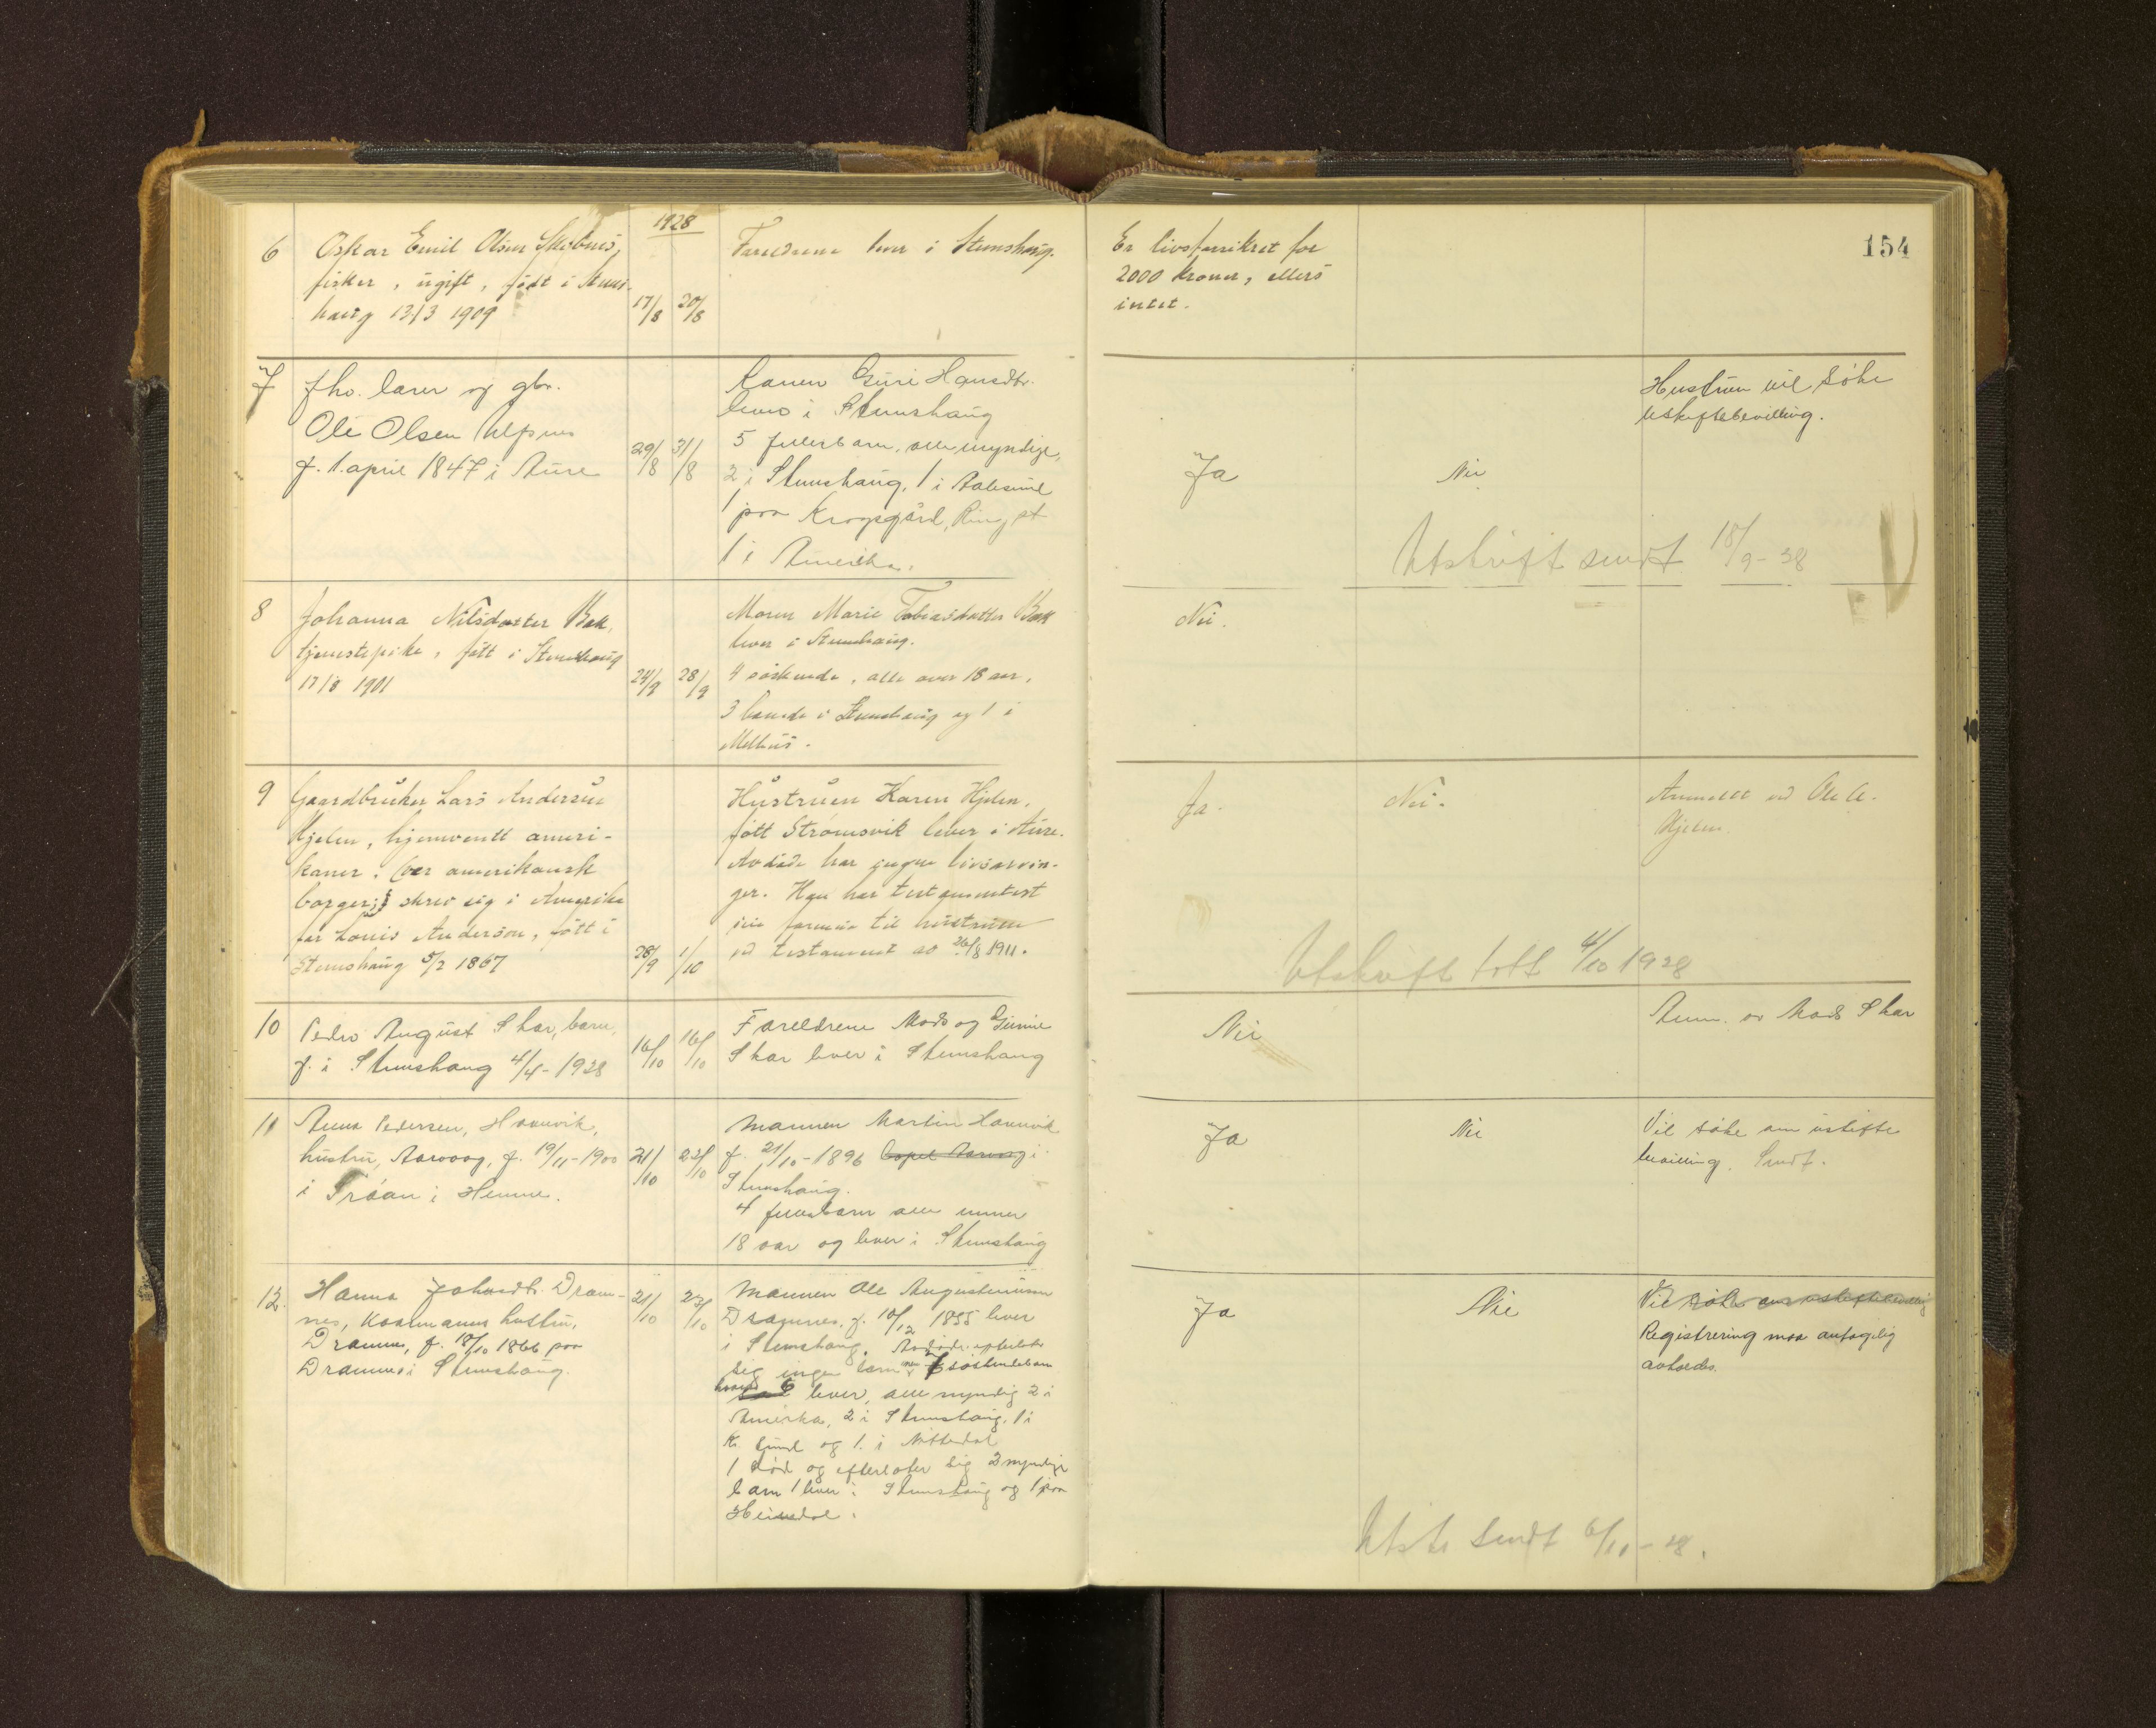 1928
154
6 Oskar Emil Olsen
fisker, ugift, født i Stems-
haug 13/3 1909
17/8 20/8
Foreldrene lever i Stemshaug.
Er livsforsikret for
2000 kroner, ellers
intet.
7 fhv. lærer og gbr.
Ole Olsen Ulfsnes
f. 1. april 1847 i Aure
29/8 31/8
Konen Guri Hansdtr.
lever i Stemshaug
5 fellesbarn, alle myndige,
2 i Stemshaug, 1 i Aalesund
1 paa Krogsgård, Ring st
1 i Amerika.
Ja
Nei
Hustruen vil søke
uskiftebevilling.
Utskrift sendt 18/9-28
8 Johanna Nilsdatter Bak,
tjenestepike, født i Stemshaug
17/8 1901
24/9 28/9
Moren Marie Tobiasdatter Bak
lever i Stemshaug.
4 søskende, alle over 18 aar,
3 boende i Stemshaug og 1 i
Melhus.
Nei.
9 Gaardbruker Lars Andersen
Hjelen, hjemvendt ameri-
kaner. (var amerikansk
borger;) skrev sig i Amerika
for Louis Anderson, født i
Stemshaug 5/2 1867
28/9 1/10
Hustruen Karen Hjelen,
født Strømsvik lever i Aure.
Avdøde har ingen livsarvin-
ger. Han har testamentert
sin formue til hustruen
ved testament av 26/8 1911.
Ja.
Nei.
Anmeldt ved Ole A.
Hjelen.
Utskrift tatt 4/10 1928
10 Peder August Skar, barn,
f. i Stemshaug 4/4-1928
16/10 16/10
Foreldrene Mads og Gunne
Skar lever i Stemshaug
Nei
Anm. av Mads Skar
11 Anna Pedersen, Havnvik,
hustru, Aarvaag, f. 19/11-1900
i Trøan i Hemne.
21/10 23/10
Mannen Martin Havnvik
f. 21/10-1896 i
Stemshaug.
4 fellesbarn alle under
18 aar og lever i Stemshaug
Ja
Nei
Vil søke om uskifte
bevilling. Sendt.
12. Hanna Johansdtr. Drom-
nes, Kaarmanns hustru,
Dromnes, f. 18/10 1866 paa
Dromnes i Stemshaug.
21/10 23/10
Mannen Ole Augustinussen
Dromnes, f. 10/12 1855 lever
i Stemshaug. Avdøde efterlater
sig ingen barn men 7 søskendebarn
hvorav 6 lever, alle myndig 2 i
Amerika, 2 i Stemshaug, 1 i
Kr. sund og 1 i Nittedal
1 død og efterlater sig 2 myndige
barn 1 lever i Stemshaug og 1 paa
Heimdal.
Ja
Nei
Vil søke om uskiftebevilling
Registrering maa antagelig
avholdes.
Utskr. sendt 6/11-28.